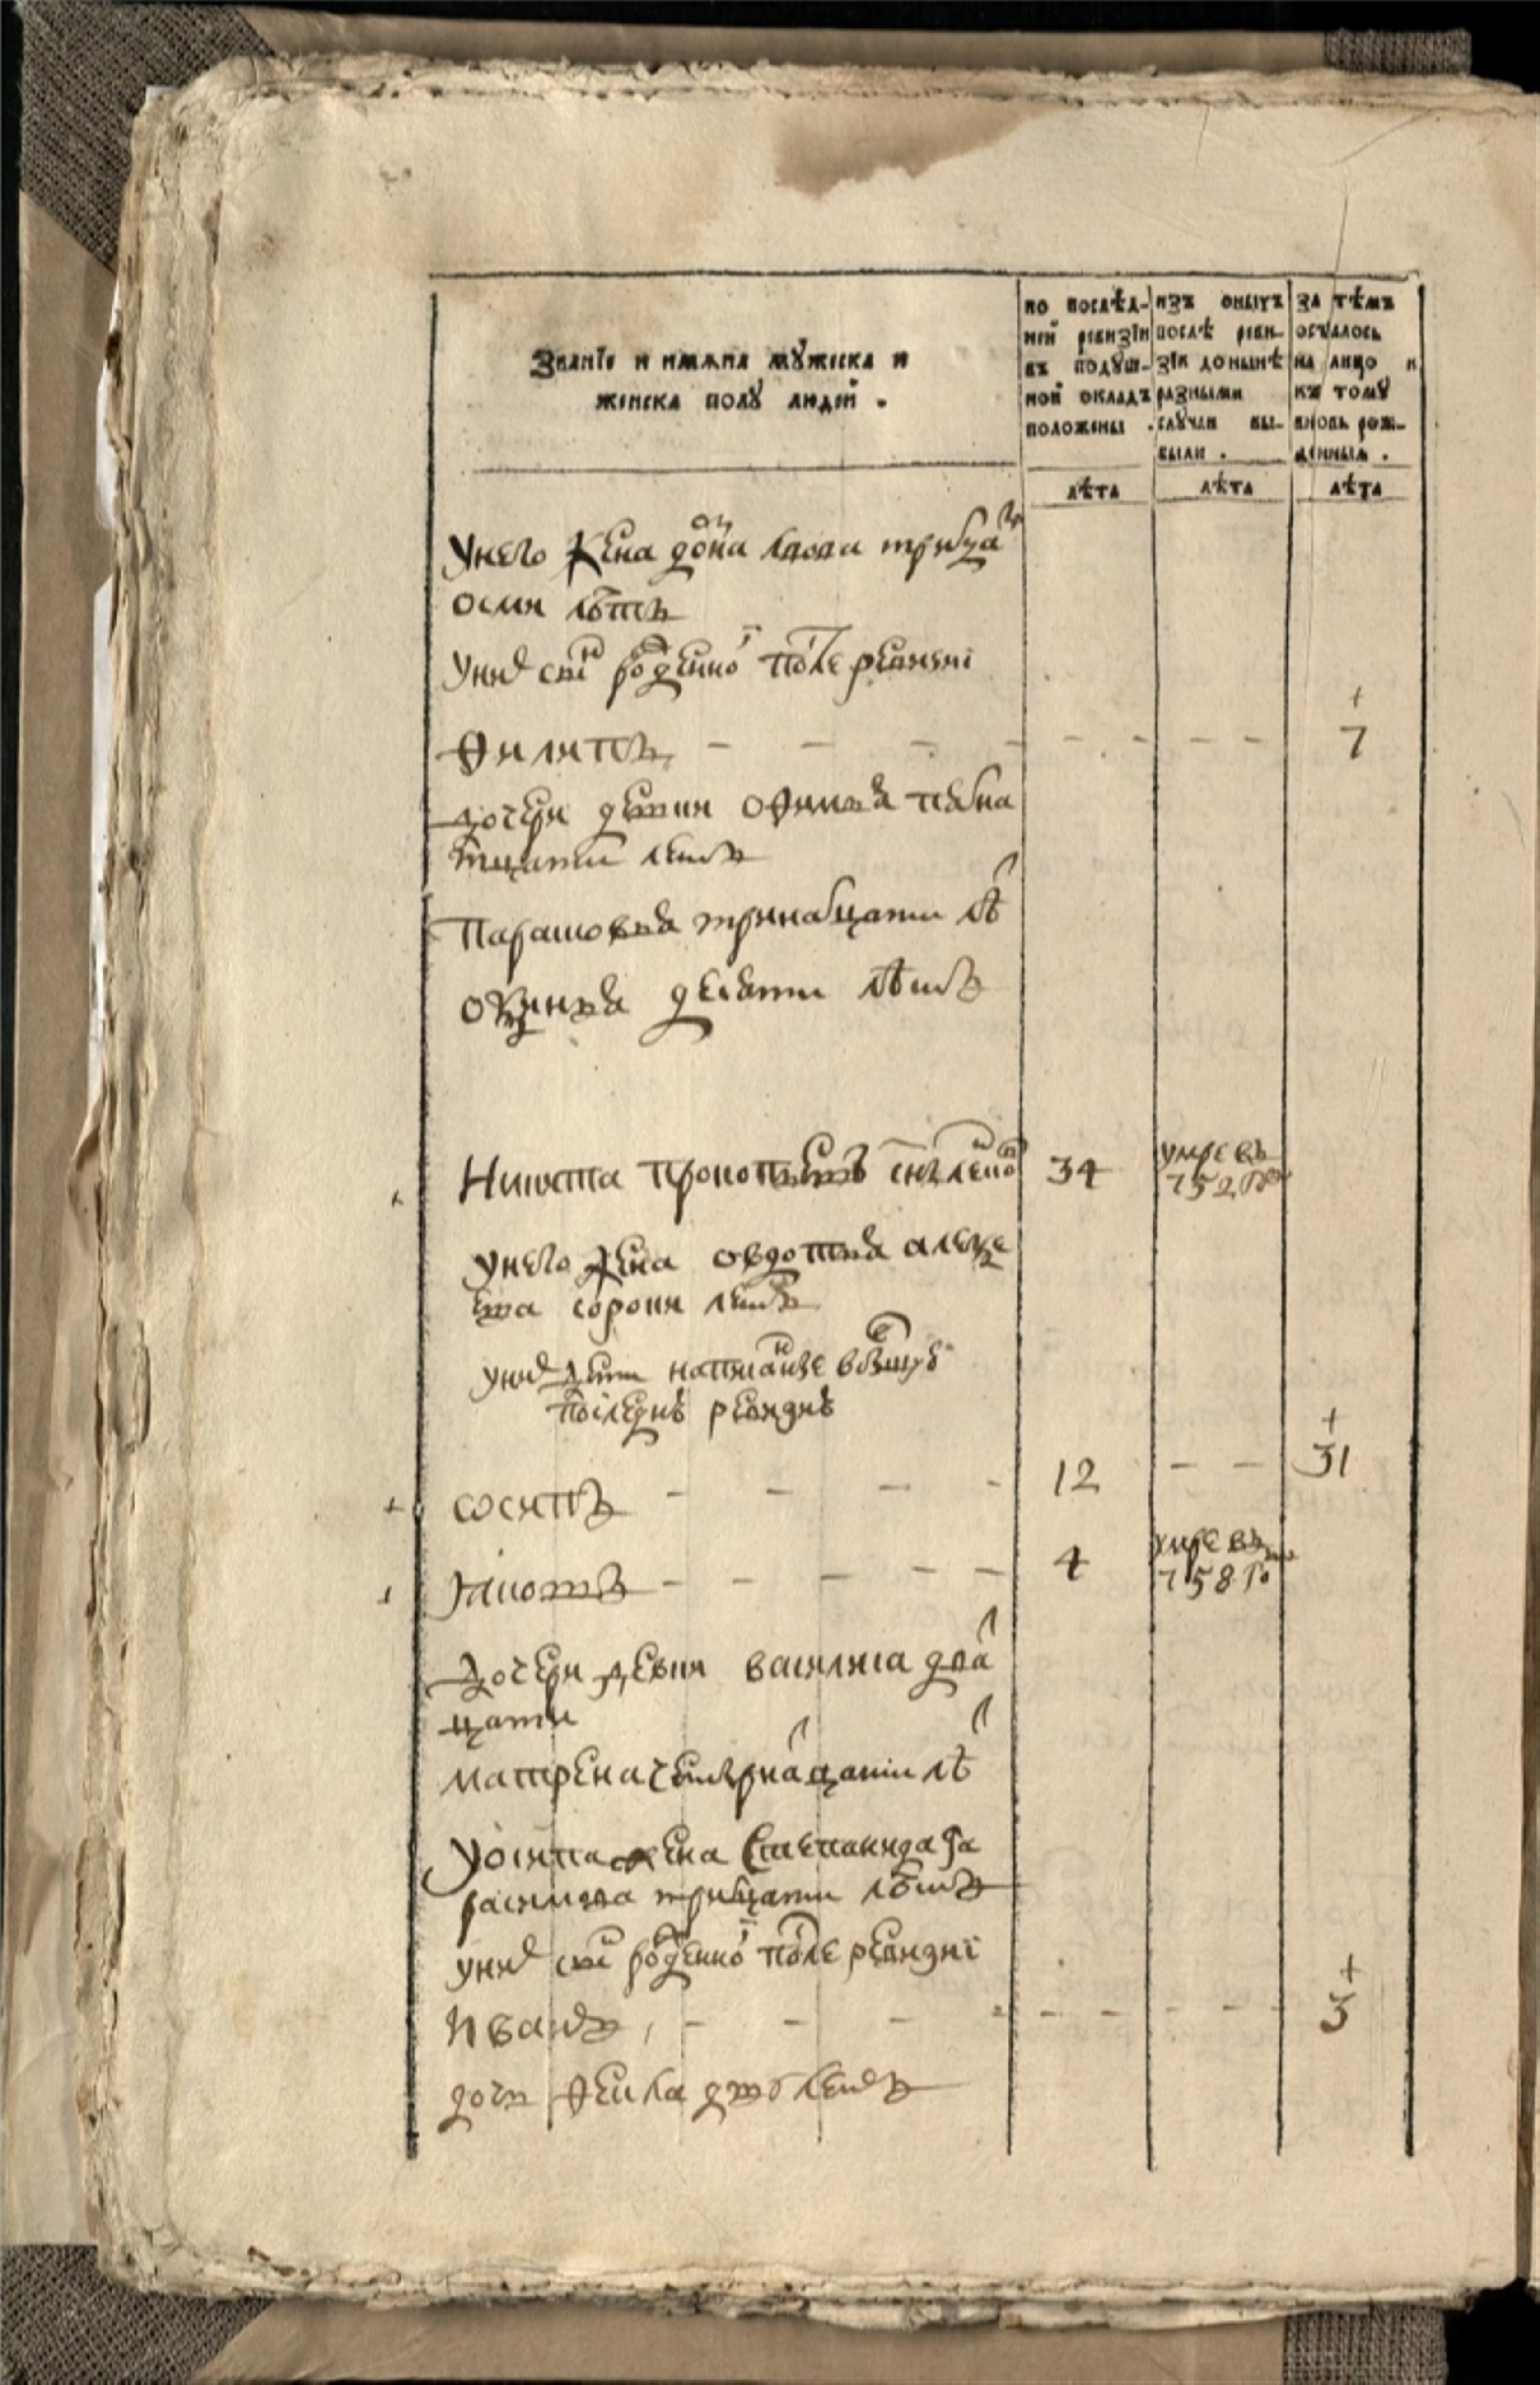 Званїе и имѧна мꙋжеска и
женска полꙋ людей .
по послѣд-
ней ревизїи
въ подꙋш-
ной окладъ
положены .
изъ оныхъ
послѣ реви-
зїи до нынѣ
разными
слꙋчаи вы-
были .
за тѣмъ
осталось
на лицо и
къ томꙋ
вновь рож-
денныѧ .
лѣта лѣта лѣта
унего жена
осми летъ
уних сынъ рожденной после ревизиї
Филипъ 7
дочери девки Офимья
натцати летъ
Парасковья тринатцати лѣтъ
десяти лѣтъ
Никита Прокопьевъ 34 умре въ
752 го
унего жена овдотья алексе
ева сорока летъ
уних дети написанные
последней ревизиї
Осипъ 12 31
4 умре въ
758 го
дочери девки василиса двад
цати
матрена четырнадцати лѣтъ
уосипа жена Степанида Га
расимова тритцати летъ
уних сынъ рожденной после ревизиї
Иванъ 3
дочь Фекла дву летъ